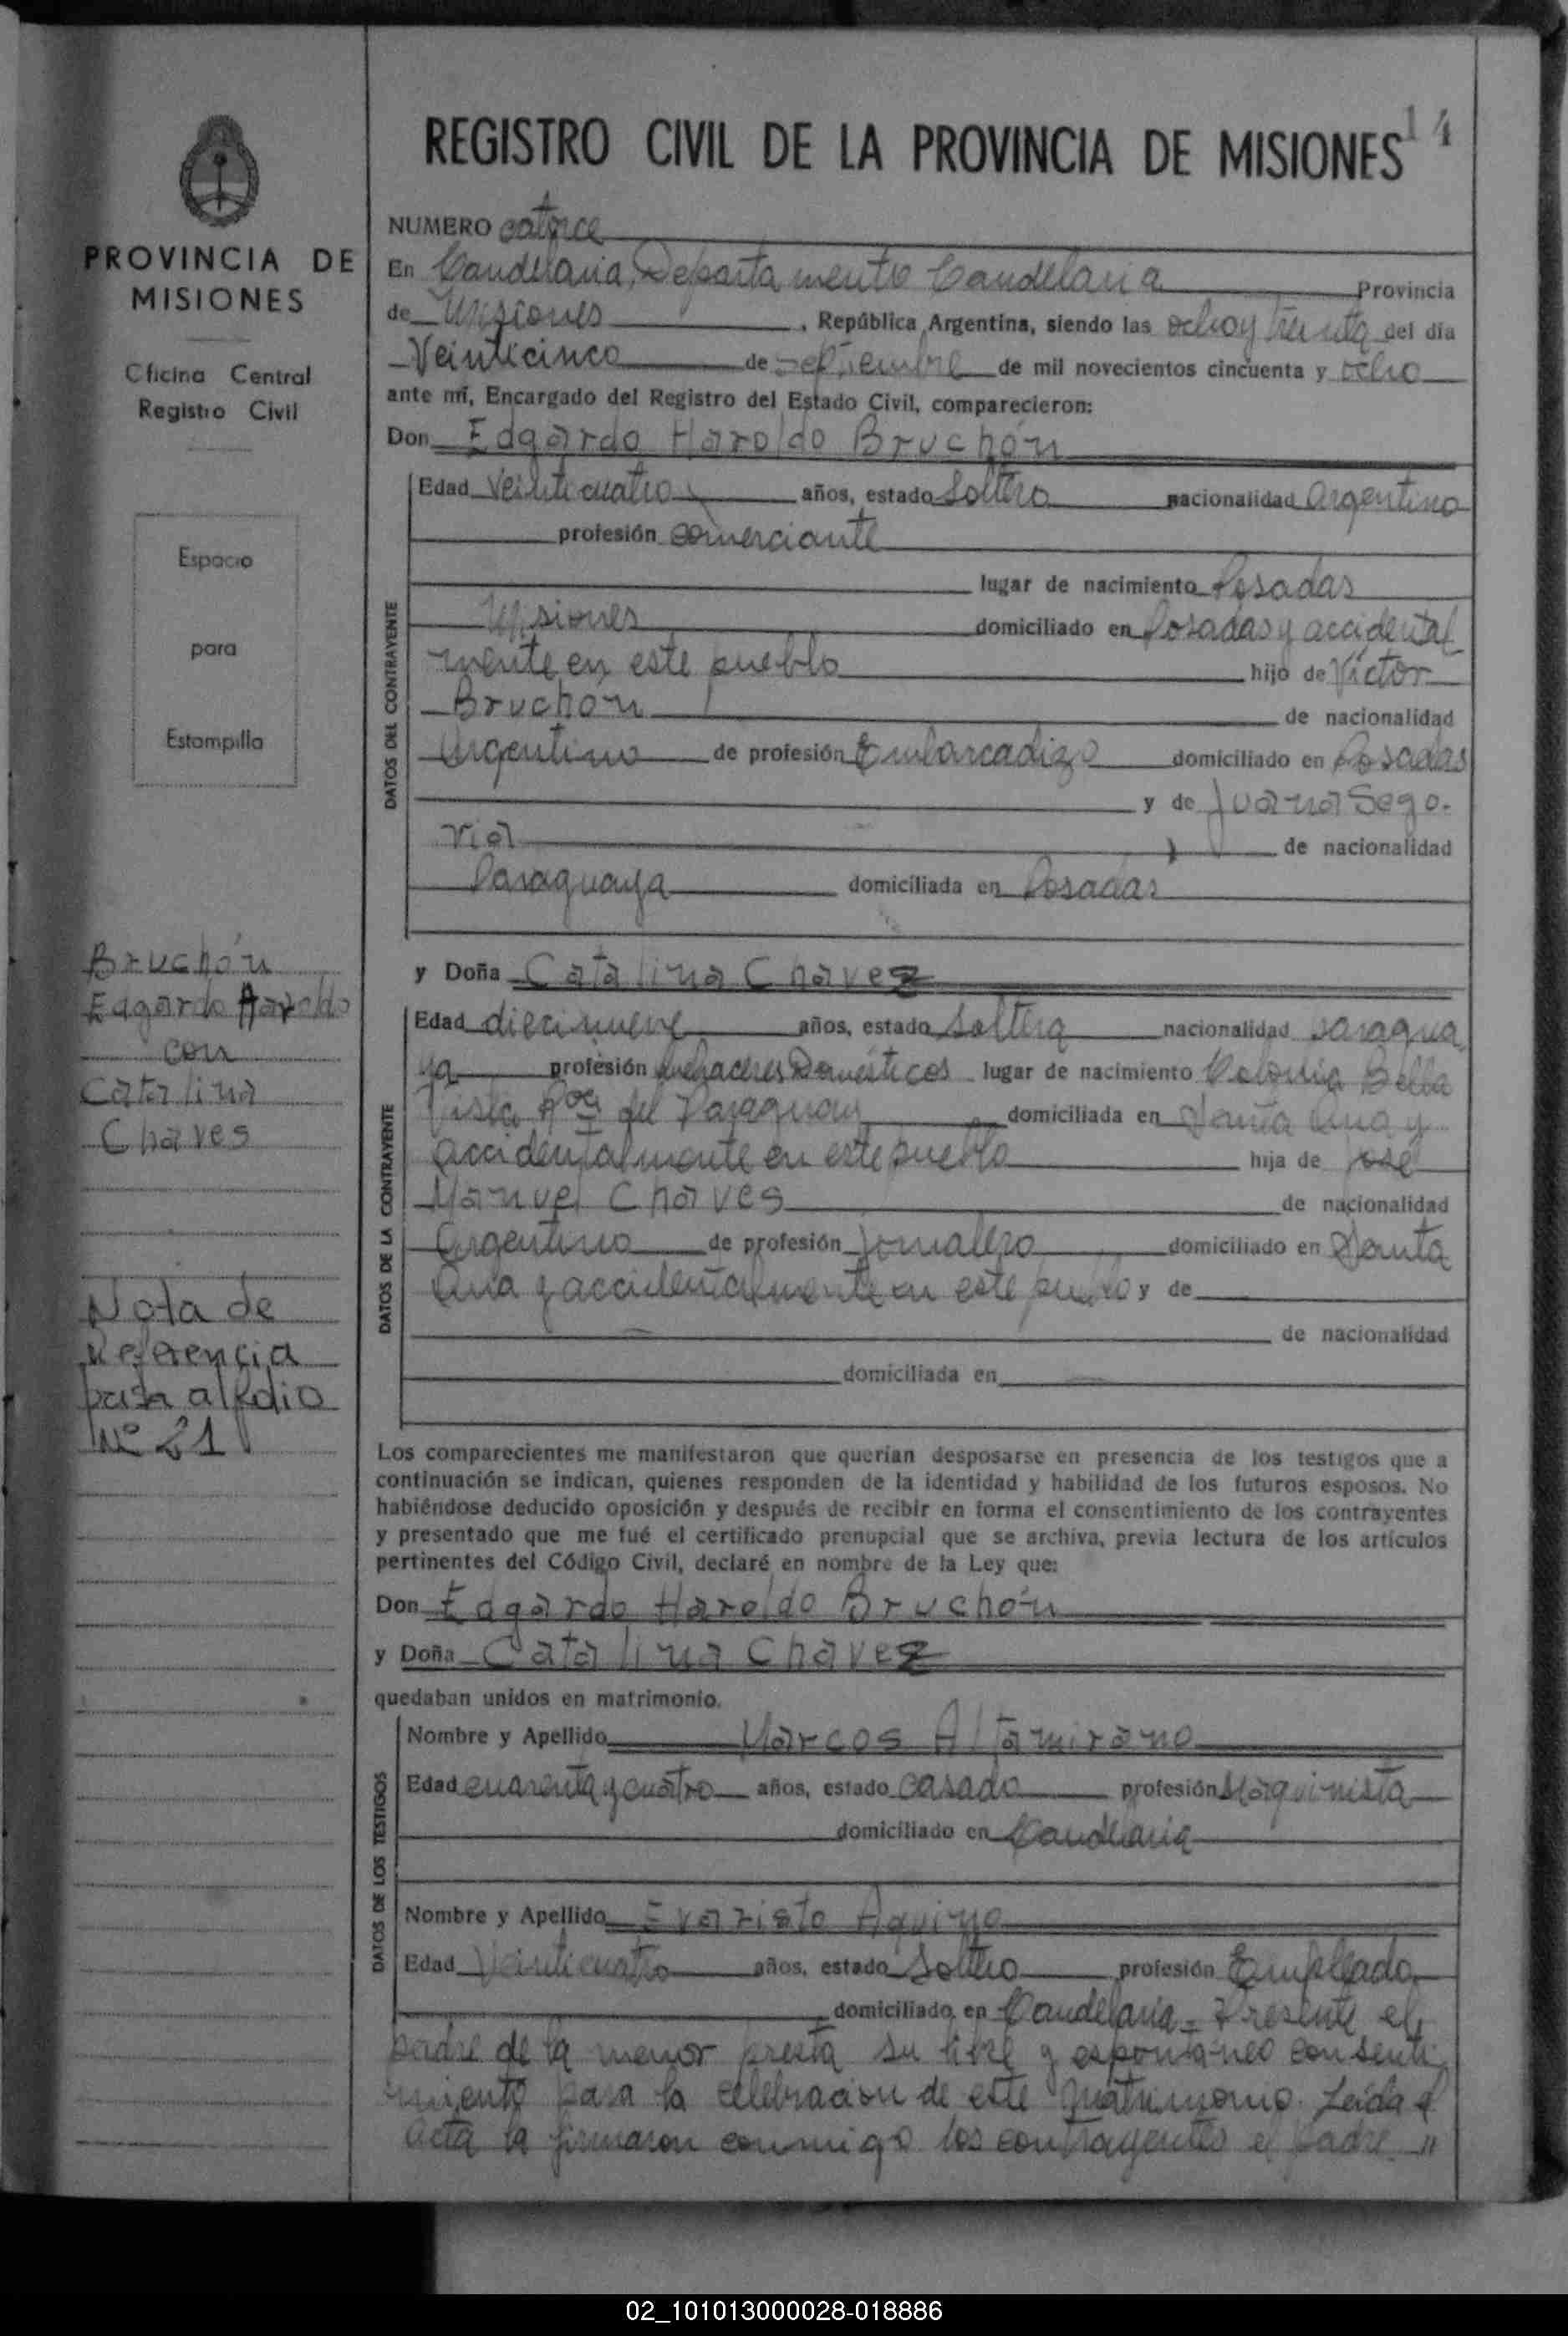 14
REGISTRO CIVIL DE LA PROVINCIA DE MISIONES
PROVINCIA DE
MISIONES
Oficina Central
Registro Civil
Espacio
para
Estampilla
Bruchón
Edgardo Haroldo
con
Catalina
Chaves
Nota de
Referencia
pasa al folio
Nº 21
NUMERO catorce
En Candelaria, Departamento Candelaria Provincia
de Misiones , República Argentina, siendo las ocho y treinta del día
Veinticinco de septiembre de mil novecientos cincuenta y ocho
ante mí, Encargado del Registro del Estado Civil, comparecieron:
Don Edgardo Haroldo Bruchón
DATOS DEL CONTRAYENTE
Edad Veinticuatro años, estado Soltero nacionalidad argentino
profesión comerciante
lugar de nacimiento Posadas
Misiones domiciliado en Posadas y accidental
mente en este pueblo hijo de Víctor
Bruchón de nacionalidad
Argentino de profesión Embarcadizo domiciliado en Posadas
y de Juana Sego-
via de nacionalidad
Paraguaya domiciliada en Posadas
y Doña Catalina Chavez
DATOS DE LA CONTRAYENTE
Edad diecinueve años, estado Soltera nacionalidad paragua
ya profesión Quehaceres Domésticos lugar de nacimiento Colonia Bella
Vista Rca del Paraguay domiciliada en Santa Ana y
accidentalmente en este pueblo hija de José
Manuel Chaves de nacionalidad
Argentino de profesión Jornalero domiciliado en Santa
Ana y accidentalmente en este pueblo y de
de nacionalidad
domiciliada en
Los comparecientes me manifestaron que querían desposarse en presencia de los testigos que a
continuación se indican, quienes responden de la identidad y habilidad de los futuros esposos. No
habiéndose deducido oposición y después de recibir en forma el consentimiento de los contrayentes
y presentado que me fué el certificado prenupcial que se archiva, previa lectura de los artículos
pertinentes del Código Civil, declaré en nombre de la Ley que:
Don Edgardo Haroldo Bruchón
y Doña Catalina Chavez
quedaban unidos en matrimonio.
DATOS DE LOS TESTIGOS
Nombre y Apellido Marcos Altamirano
Edad cuarenta y cuatro años, estado casado profesión Maquinista
domiciliado en Candelaria
Nombre y Apellido Evaristo Aquino
Edad Veinticuatro años, estado Soltero profesión Empleado
domiciliado en Candelaria = Presente el
padre de la menor presta su libre y espontáneo consenti
miento para la celebración de este matrimonio. Leída el
acta la firmaron conmigo los contrayentes el padre "
02_101013000028-018886